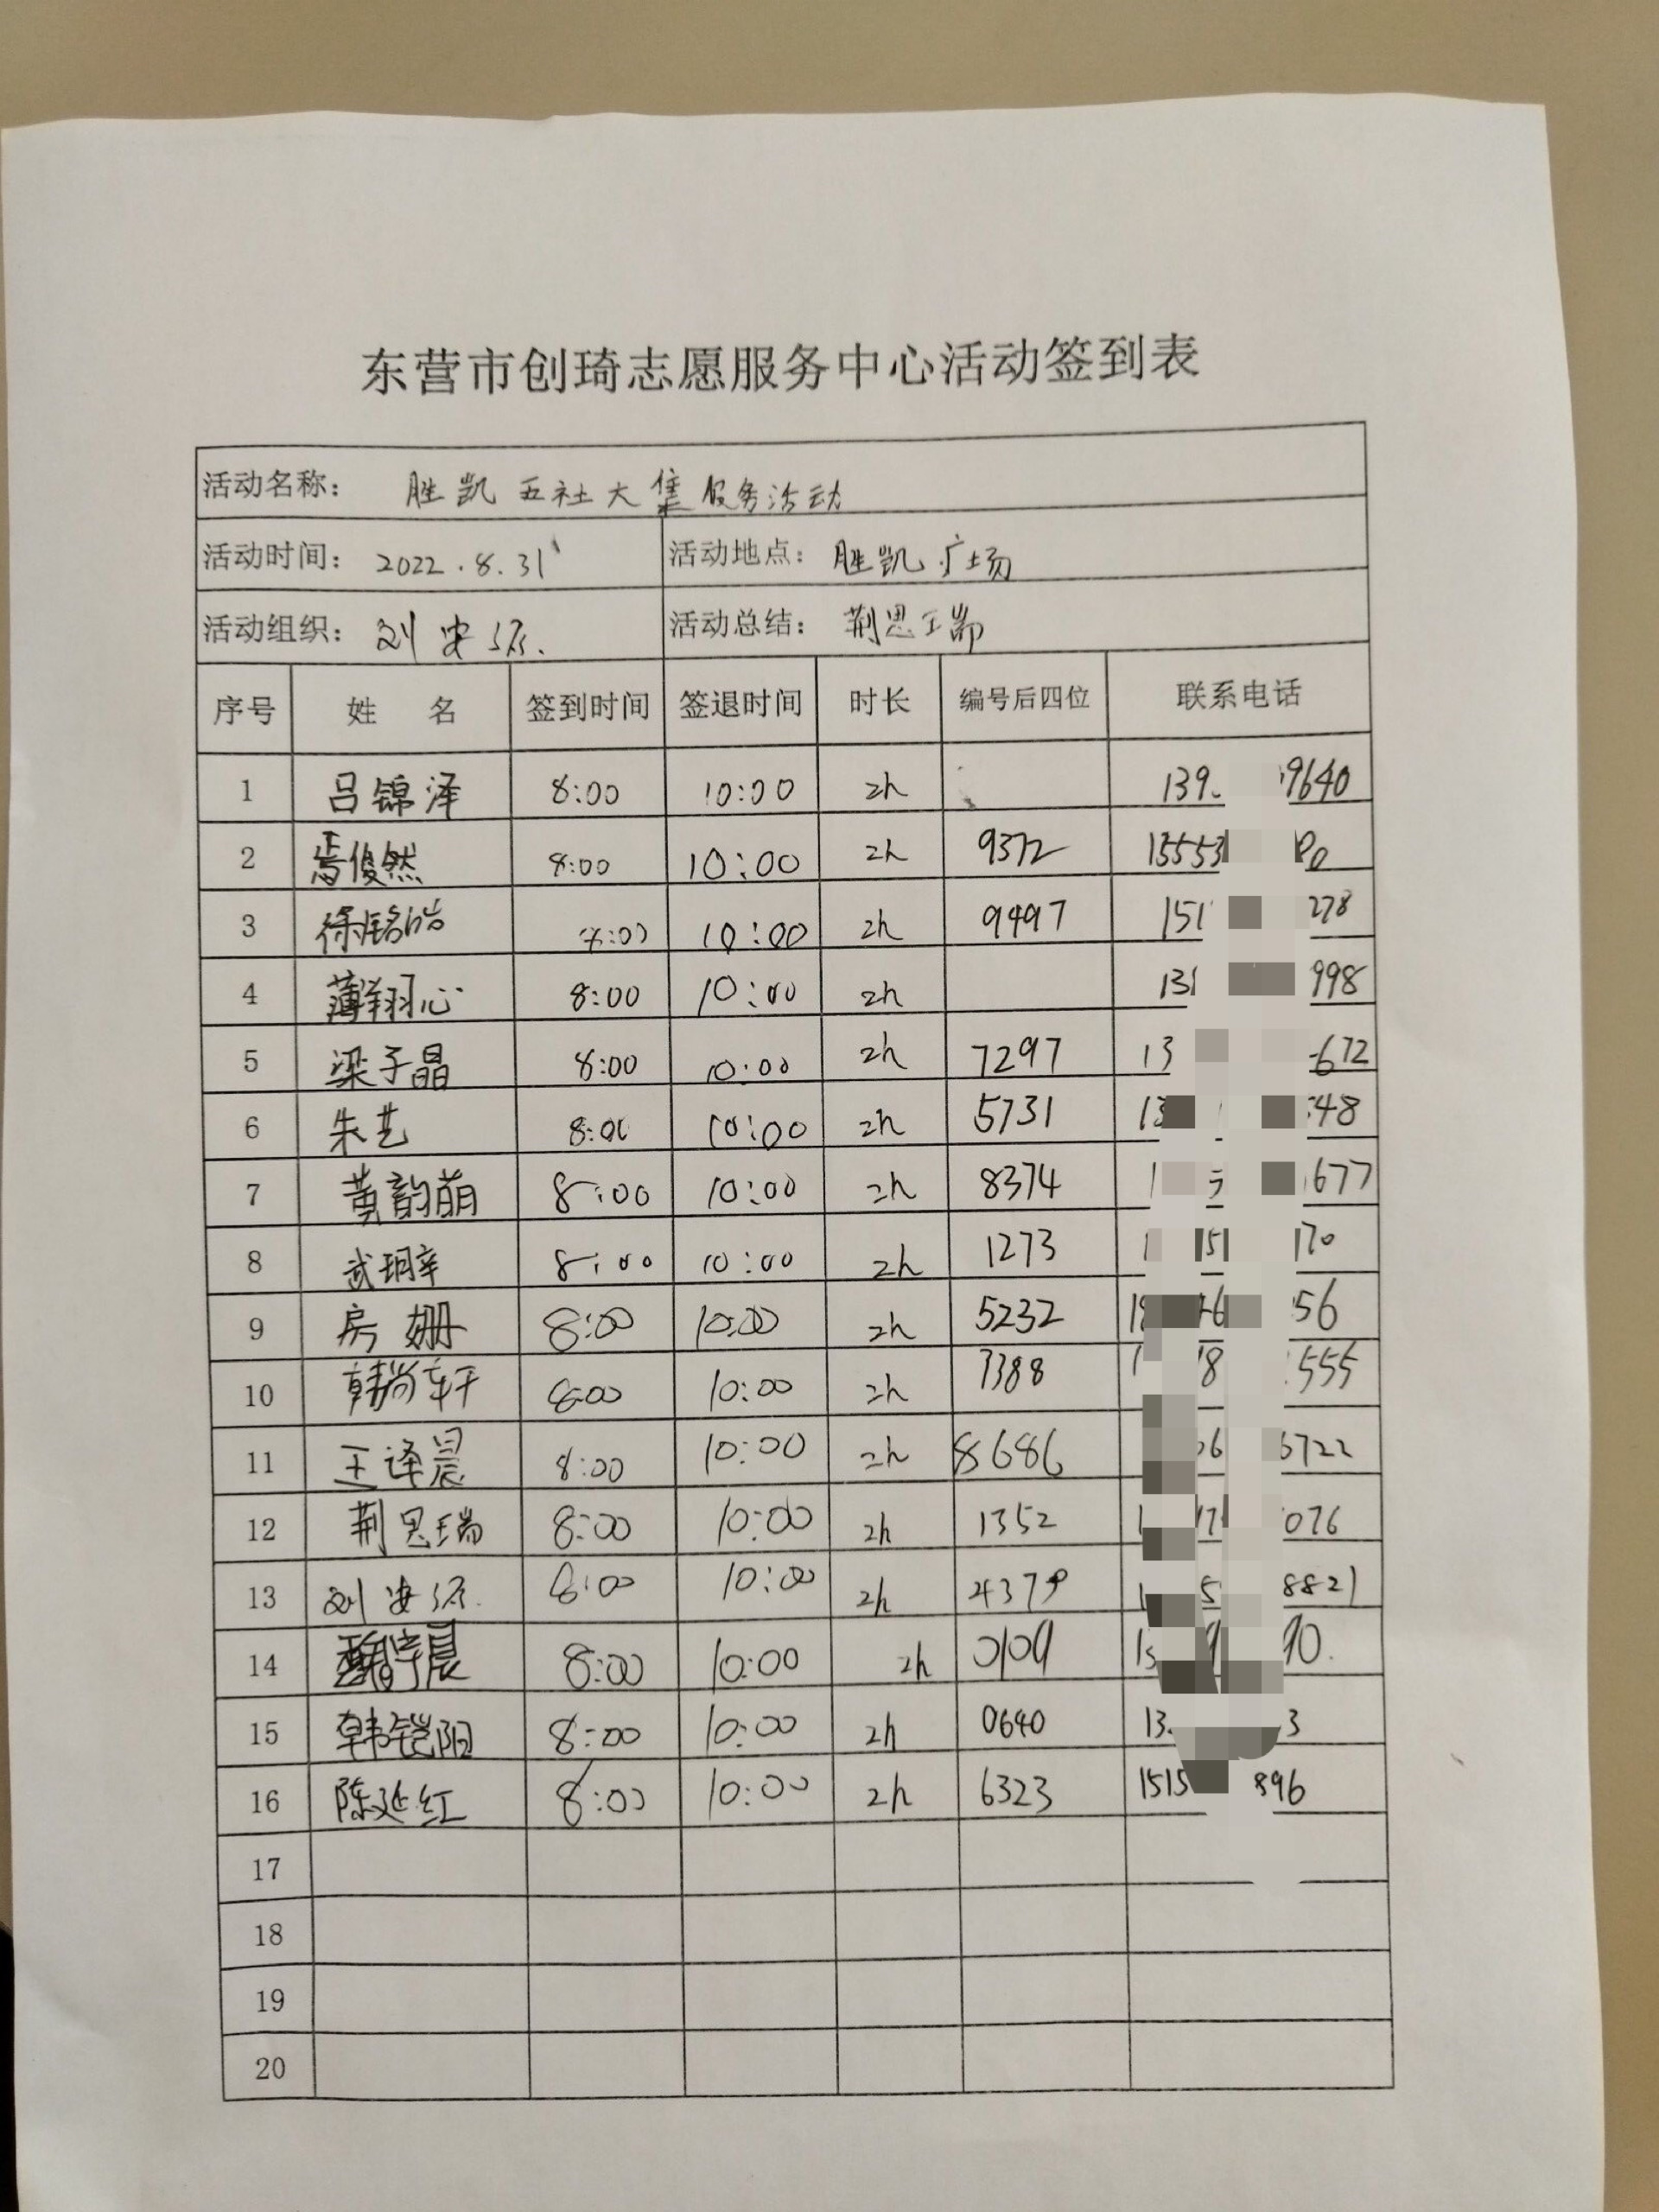 东营市创琦志愿服务中心活动签到表
活动名称： 胜凯五社大集服务活动
活动时间： 2022.8.31 活动地点： 胜凯广场
活动组织： 刘安 活动总结： 荆思瑞
序号 姓 名 签到时间 签退时间 时长 编号后四位 联系电话
1 吕锦泽 8:00 10:00 2h 139 9640
2 俊然 8:00 10:00 2h 9372 13553
3 徐铭皓 8:00 10:00 2h 9497 151 278
4 薄翔心 8:00 10:00 2h 131 998
5 梁子晶 8:00 10:00 2h 7297 13 672
6 朱艺 8:00 10:00 2h 5731 13 48
7 黄韵萌 8:00 10:00 2h 8374 1 677
8 武玥辛 8:00 10:00 2h 1273 1 151 170
9 房姗 8:00 10:00 2h 5232 18 46 56
10 韩尚轩 8:00 10:00 2h 7388 1 18 555
11 王译晨 8:00 10:00 2h 8686 06 6722
12 荆思瑞 8:00 10:00 2h 1352 1 17 076
13 刘安 8:00 10:00 2h 4379 1 5 8821
14 8:00 10:00 2h 0109 15 9 90.
15 韩铠阳 8:00 10:00 2h 0640 13 3
16 陈延红 8:00 10:00 2h 6323 1515 896
17
18
19
20